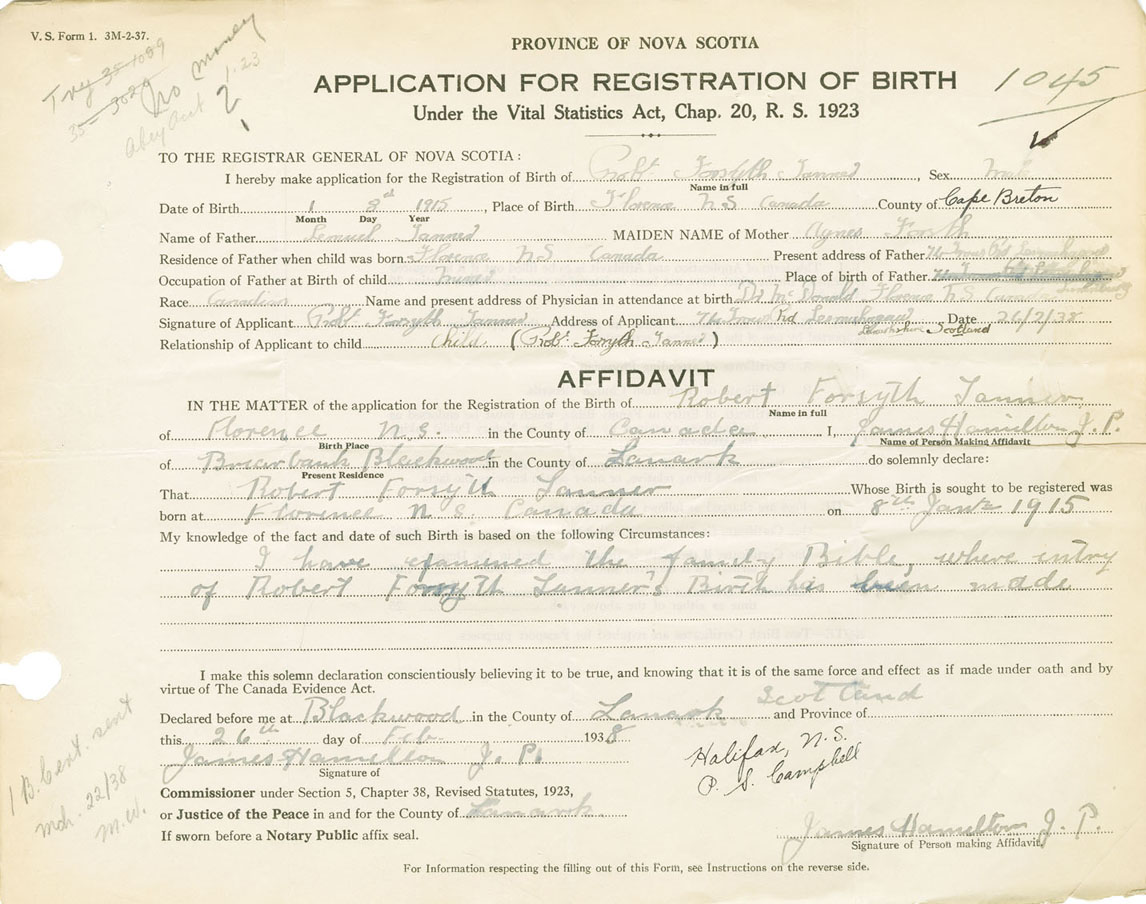 V. S. Form 1. 3M-2-37.
Try 35-1089
35-3020
No money
1.23
2
PROVINCE OF NOVA SCOTIA
APPLICATION FOR REGISTRATION OF BIRTH
1045
Under the Vital Statistics Act, Chap. 20, R. S. 1923
TO THE REGISTRAR GENERAL OF NOVA SCOTIA:
I hereby make application for the Registration of Birth of Robt Forsyth Tanner, Sex Male
Name in full
Date of Birth 1 8th 1915, Place of Birth Florence N S Canada County of Cape Breton
Month Day Year
Name of Father Lemuel Tanner MAIDEN NAME of Mother Agnes Forsyth
Residence of Father when child was born Florence N S Canada Present address of Father
Occupation of Father at Birth of child Miner Place of birth of Father
Race Canadian Name and present address of Physician in attendance at birth Dr McDonald Florence N S Canada
Signature of Applicant Robt Forsyth Tanner Address of Applicant Rd Lesmahagow Date 26/2/38
Lanarkshire Scotland
Relationship of Applicant to child Child (Robt Forsyth Tanner)
AFFIDAVIT
IN THE MATTER of the application for the Registration of the Birth of Robert Forsyth Tanner
Name in full
of Florence N.S. in the County of Canada I, James Hamilton J.P.
Birth Place Name of Person Making Affidavit
of Briarbank Blackwood in the County of Lanark do solemnly declare:
Present Residence
That Robert Forsyth Tanner Whose Birth is sought to be registered was
born at Florence N S. Canada on 8th Jany 1915
My knowledge of the fact and date of such Birth is based on the following Circumstances:
I have examined the family Bible, where entry
of Robert Forsyth Tanner's Birth has been made
I make this solemn declaration conscientiously believing it to be true, and knowing that it is of the same force and effect as if made under oath and by
virtue of The Canada Evidence Act.
Scotland
Declared before me at Blackwood in the County of Lanark and Province of
this 26th day of Feb. 1938
James Hamilton J. P.
Signature of
Halifax, N.S.
P. S. Campbell
1 B. Cert. sent
Mch. 22/38
M.W.
Commissioner under Section 5, Chapter 38, Revised Statutes, 1923,
or Justice of the Peace in and for the County of Lanark
If sworn before a Notary Public affix seal.
James Hamilton J. P.
Signature of Person making Affidavit.
For Information respecting the filling out of this Form, see Instructions on the reverse side.